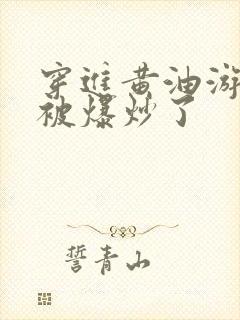 穿进黄油游
被爆炒了
誓青山